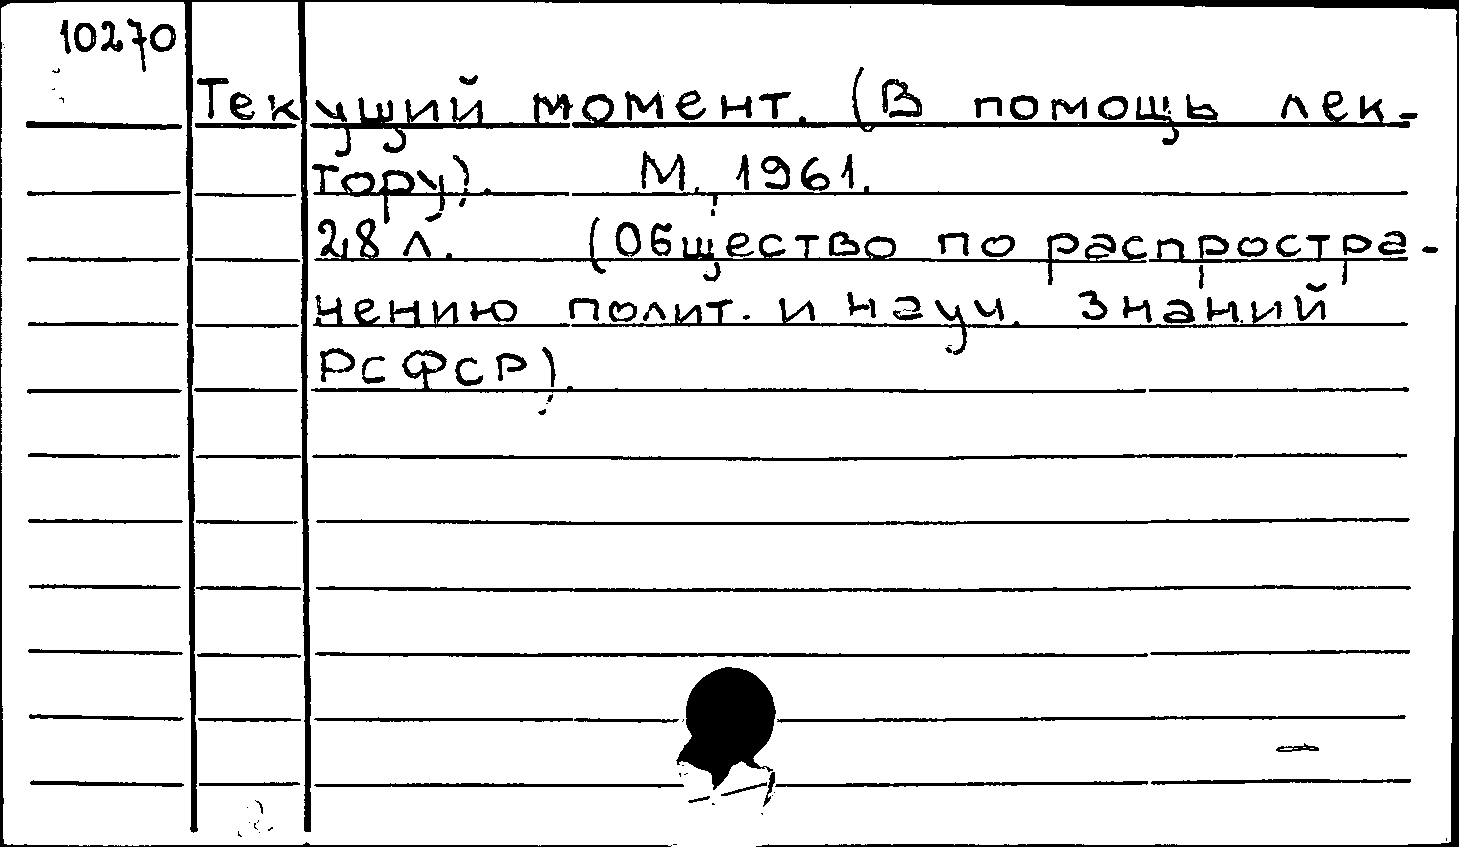 10270
Текущий момент. (В помощь лек-
тору). М., 1961.
28 л. (Общество по распростра-
нению полит. и науч. знаний
РСФСР).